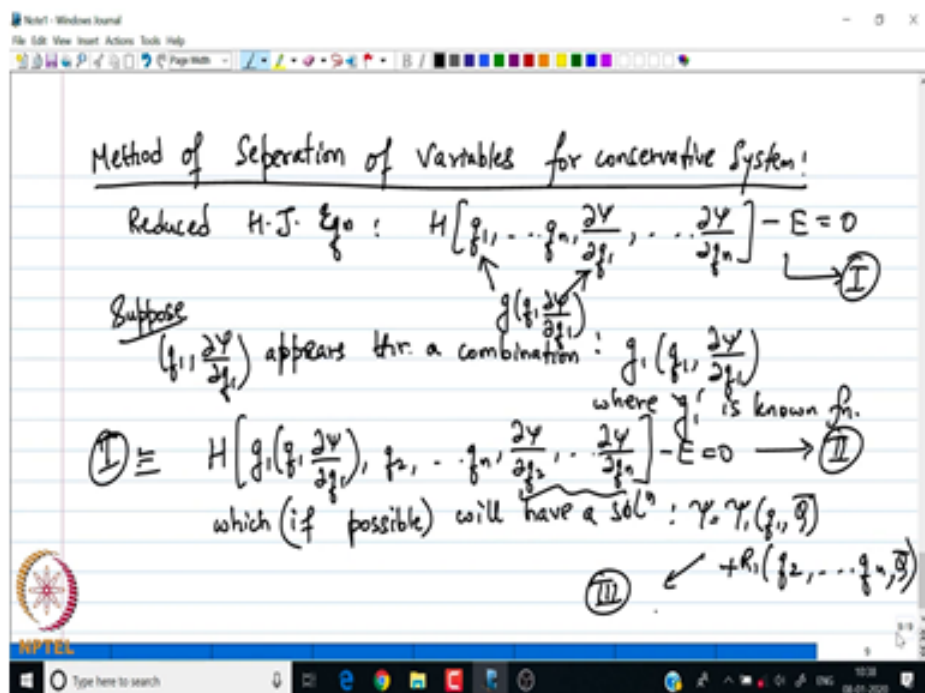 Note1 - Windows Journal
File Edit View Insert Actions Tools Help
Page Width
Method of Seperation of Variables for conservative System:
Reduced H.J. Eqn : H[q₁, ... qₙ, ∂Ψ/∂q₁, ... ∂Ψ/∂qₙ] - E = 0
I
g(q₁ ∂Ψ/∂q₁)
Suppose
(q₁, ∂Ψ/∂q₁) appears thr. a combination : g₁(q₁, ∂Ψ/∂q₁)
where g₁ is known fn.
I ≡ H[g₁(q₁ ∂Ψ/∂q₁), q₂, .. qₙ, ∂Ψ/∂q₂, .. ∂Ψ/∂qₙ] - E = 0 → II
which (if possible) will have a solⁿ : Ψ = Ψ₁(q₁, Q̄)
+ R₁(q₂, .... qₙ, Q̄)
III
NPTEL
9/9
9
Type here to search
ENG
10:38